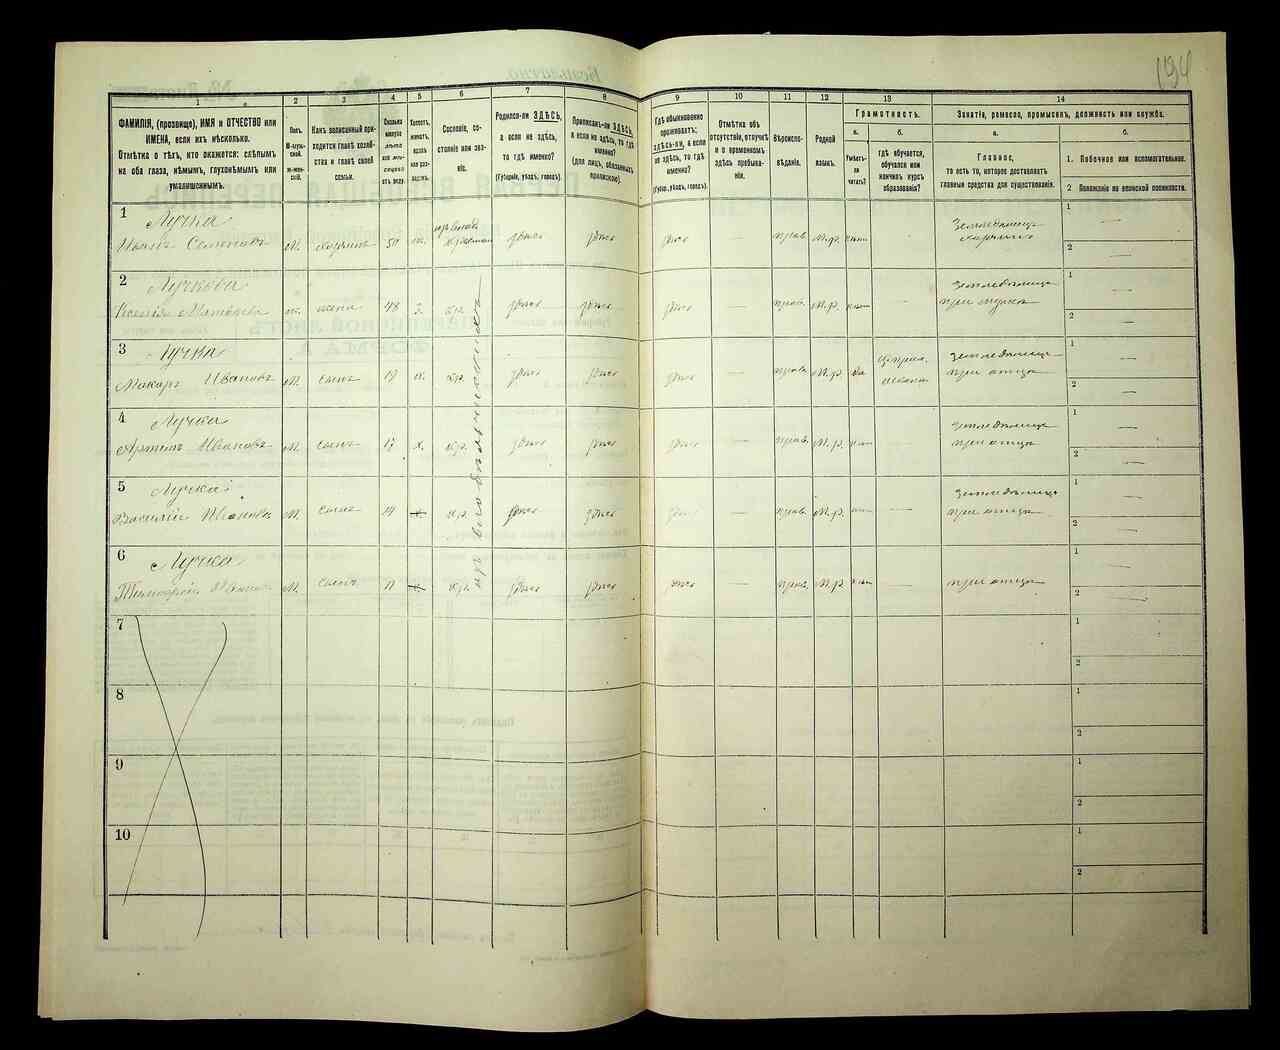 194
1
2
3
4
5
6
7
8
9
10
11
12
13
14
ФАМИЛІЯ, (прозвище), ИМЯ и ОТЧЕСТВО или
ИМЕНА, если ихъ нѣсколько.
Отмѣтка о тѣхъ, кто окажется: слѣпымъ
на оба глаза, нѣмымъ, глухонѣмымъ или
умалишеннымъ.
Полъ.
М-муж-
ской.
Ж-жен-
скій.
Какъ записанный при-
ходится главѣ хозяй-
ства и главѣ своей
семьи.
Сколько
минуло
лѣтъ
или мѣ-
сяцевъ
отъ роду.
Холостъ,
женатъ,
вдовъ
или раз-
веденъ.
Сословіе, со-
стояніе или зва-
ніе.
Родился-ли ЗДѢСЬ,
а если не здѣсь,
то гдѣ именно?
(Губернія, уѣздъ, городъ).
Приписанъ-ли ЗДѢСЬ,
а если не здѣсь, то гдѣ
именно?
(для лицъ, обязанныхъ
припискою).
Гдѣ обыкновенно
проживаетъ:
здѣсь-ли, а если
не здѣсь, то гдѣ
именно?
(Губерн., уѣздъ, городъ).
Отмѣтка объ
отсутствіи, отлучкѣ
и о временномъ
здѣсь пребыва-
ніи.
Вѣроиспо-
вѣданіе.
Родной
языкъ.
Грамотность.
а.
Умѣетъ-
ли
читать?
б.
Гдѣ обучается,
обучался или
кончилъ курсъ
образованія?
Занятіе, ремесло, промыселъ, должность или служба.
а.
Главное,
то есть то, которое доставляетъ
главныя средства для существованія.
б.
1. Побочное или вспомогательное.
2 Положеніе по воинской повинности.
1
Лучка
Иванъ Семеновъ
М.
хозяинъ
50
ж.
здѣсь
здѣсь
здѣсь
прав.
М.р.
Земледѣлецъ
1 —
2 —
2
Лучкова
Ксенія Матвѣева
ж.
жена
48
з.
кр.
здѣсь
здѣсь
здѣсь
—
прав.
М.р.
—
Земледѣлица
при мужѣ
1 —
2 —
3
Лучка
Макаръ Ивановъ
М.
сынъ
19
х.
кр.
здѣсь
здѣсь
здѣсь
—
прав.
М.р.
да
Земледѣлецъ
при отцѣ
1 —
2 —
4
Лучка
Артемъ Ивановъ
М.
сынъ
17
х.
кр.
здѣсь
здѣсь
здѣсь
—
прав.
М.р.
—
Земледѣлецъ
при отцѣ
1 —
2 —
5
Лучка
Василій Ивановъ
М.
сынъ
14
х.
кр.
здѣсь
здѣсь
здѣсь
—
прав.
М.р.
—
Земледѣлецъ
при отцѣ
1 —
2 —
6
Лучка
Тимофей Ивановъ
М.
сынъ
11
х.
кр.
здѣсь
здѣсь
здѣсь
—
прав.
М.р.
—
при отцѣ
1 —
2 —
7
1
2
8
1
2
9
1
2
10
1
2